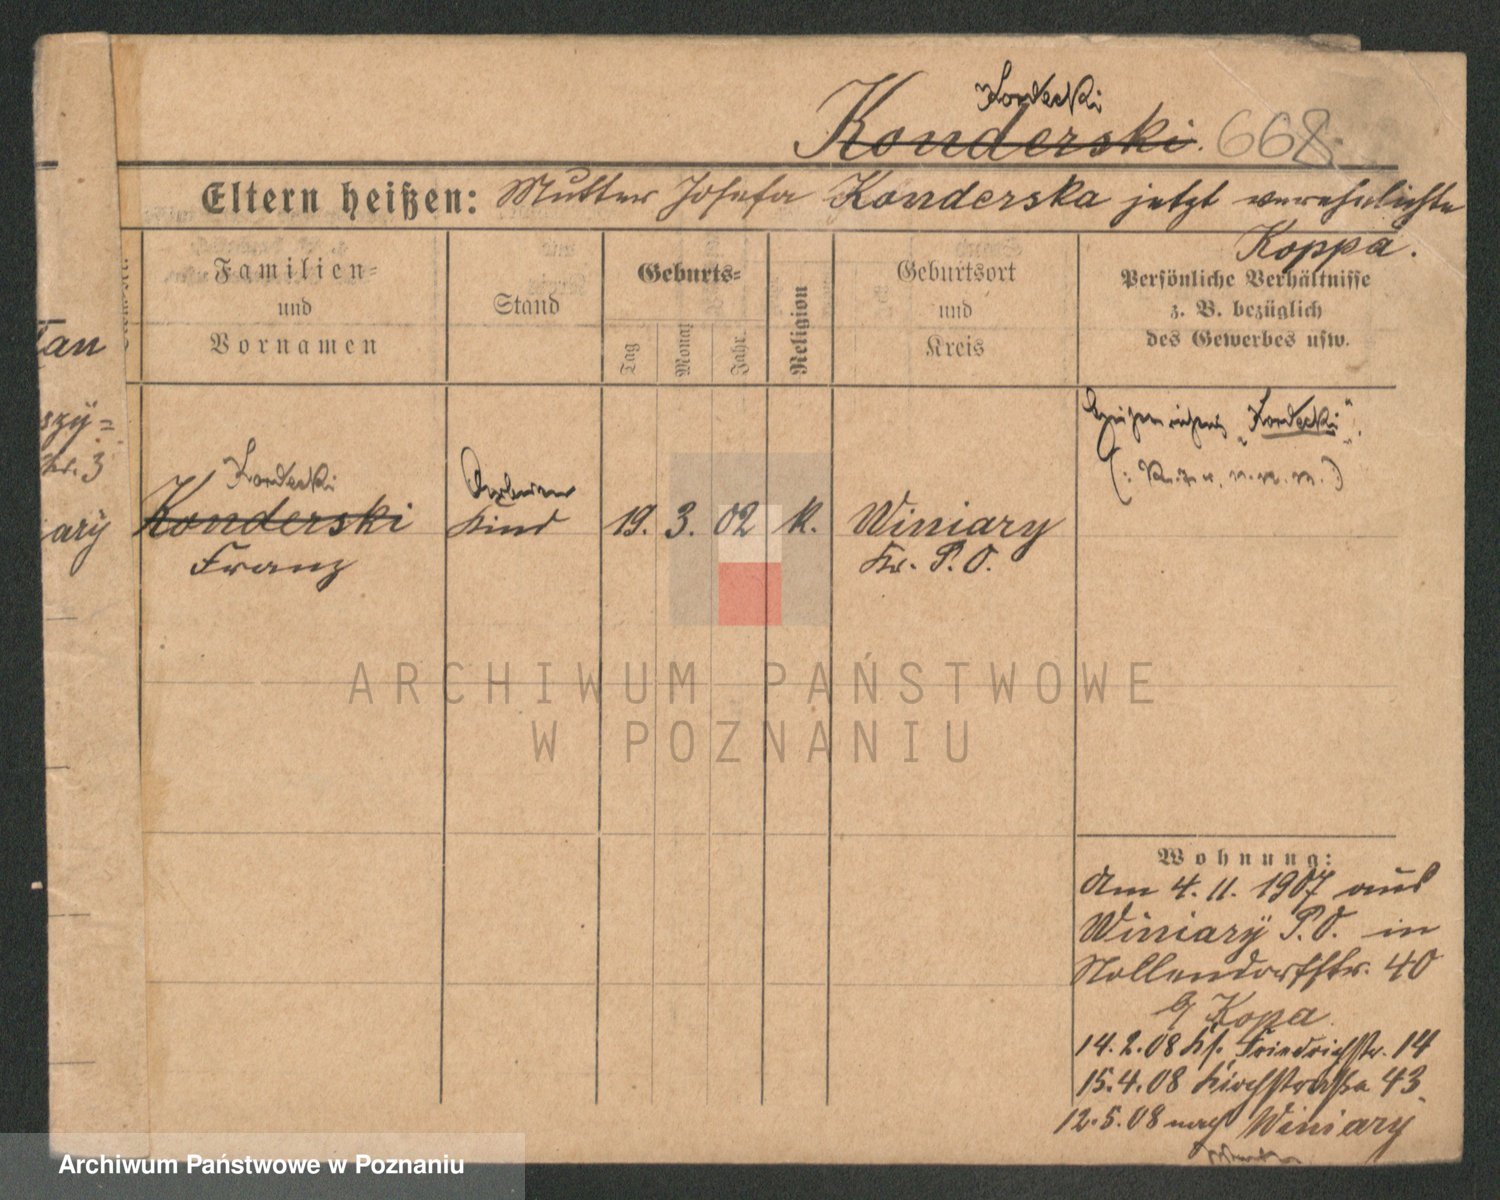 Kordecki
Konderski. 668
Eltern heißen: Mutter Josefa Konderska jetzt verehelichte
Koppa.
Familien-
und
Vornamen
Stand
Geburts-
Tag
Monat
Jahr
Religion
Geburtsort
und
Kreis
Persönliche Verhältnisse
z. B. bezüglich
des Gewerbes usw.
tan
szÿ=
Str. 3
ary
Kordecki
Konderski
Franz
Kind
19. 3. 02 K.
Winiary
Kr. P. O.
"Kordecki".
Wohnung:
Am 4. 11. 1907 aus
Winiarÿ P. O. in
Nollendorffstr. 40
b/ Kopa
14. 2. 08 Kl. Friedrichstr. 14
15. 4. 08 Kirchstraße 43
12. 5. 08 nach Winiary
ARCHIWUM PAŃSTWOWE
W POZNANIU
Archiwum Państwowe w Poznaniu